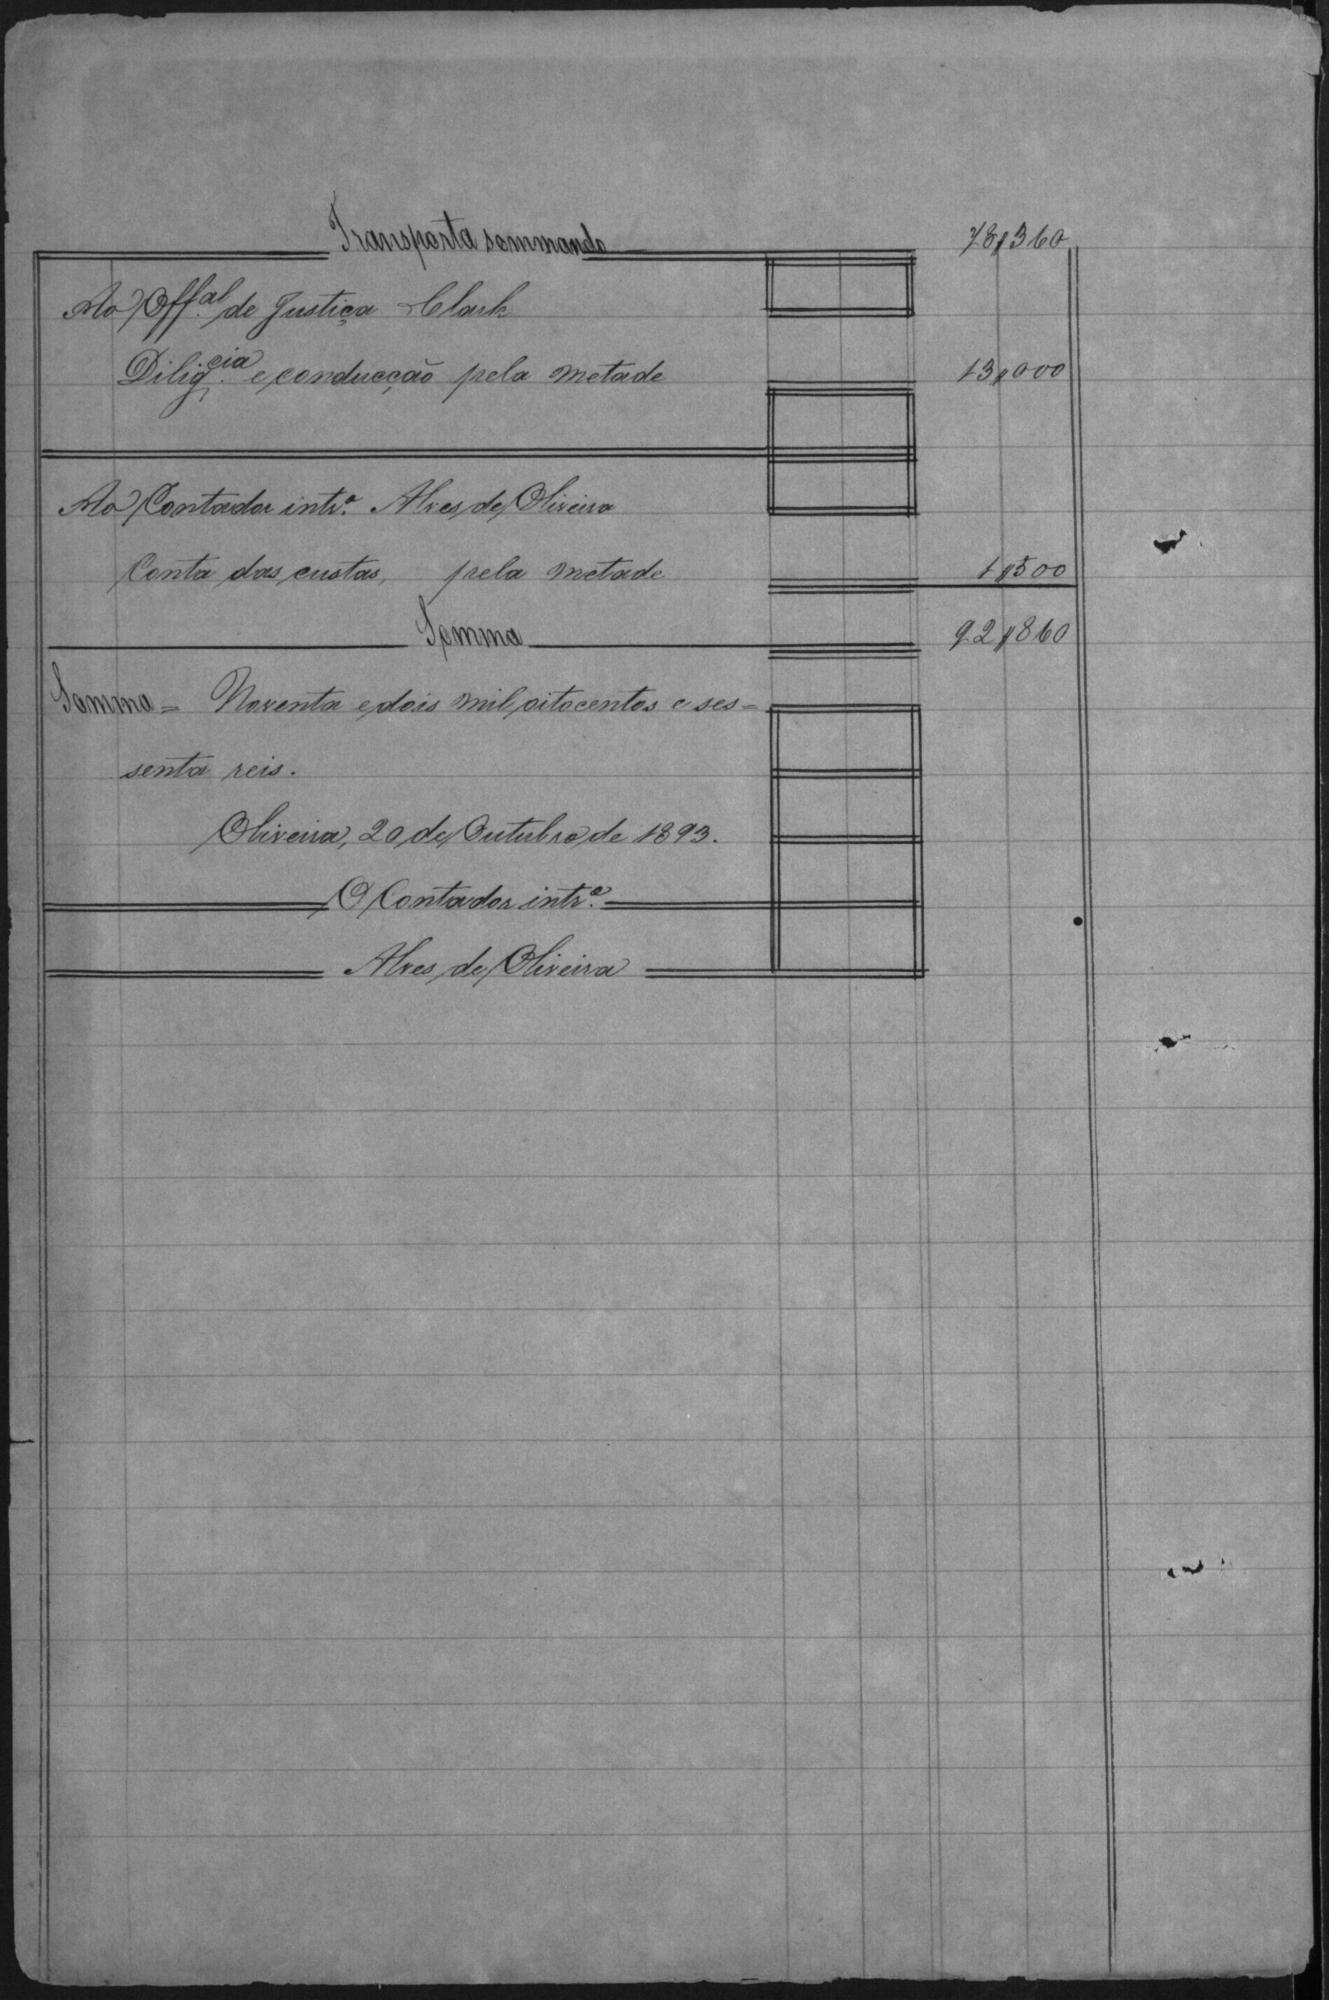 Transporta sommando 78$360
Ao Off.al de Justiça Clark
Dilig.cia e conducção pela metade 13$000
Ao Contador intr.º Alves de Oliveira
Conta das custas, pela metade 1$500
Somma 92$860
Somma = Noventa e dois mil oitocentos e ses=
senta reis.
Oliveira, 20 de Outubro de 1893.
O Contador intr.º
Alves de Oliveira